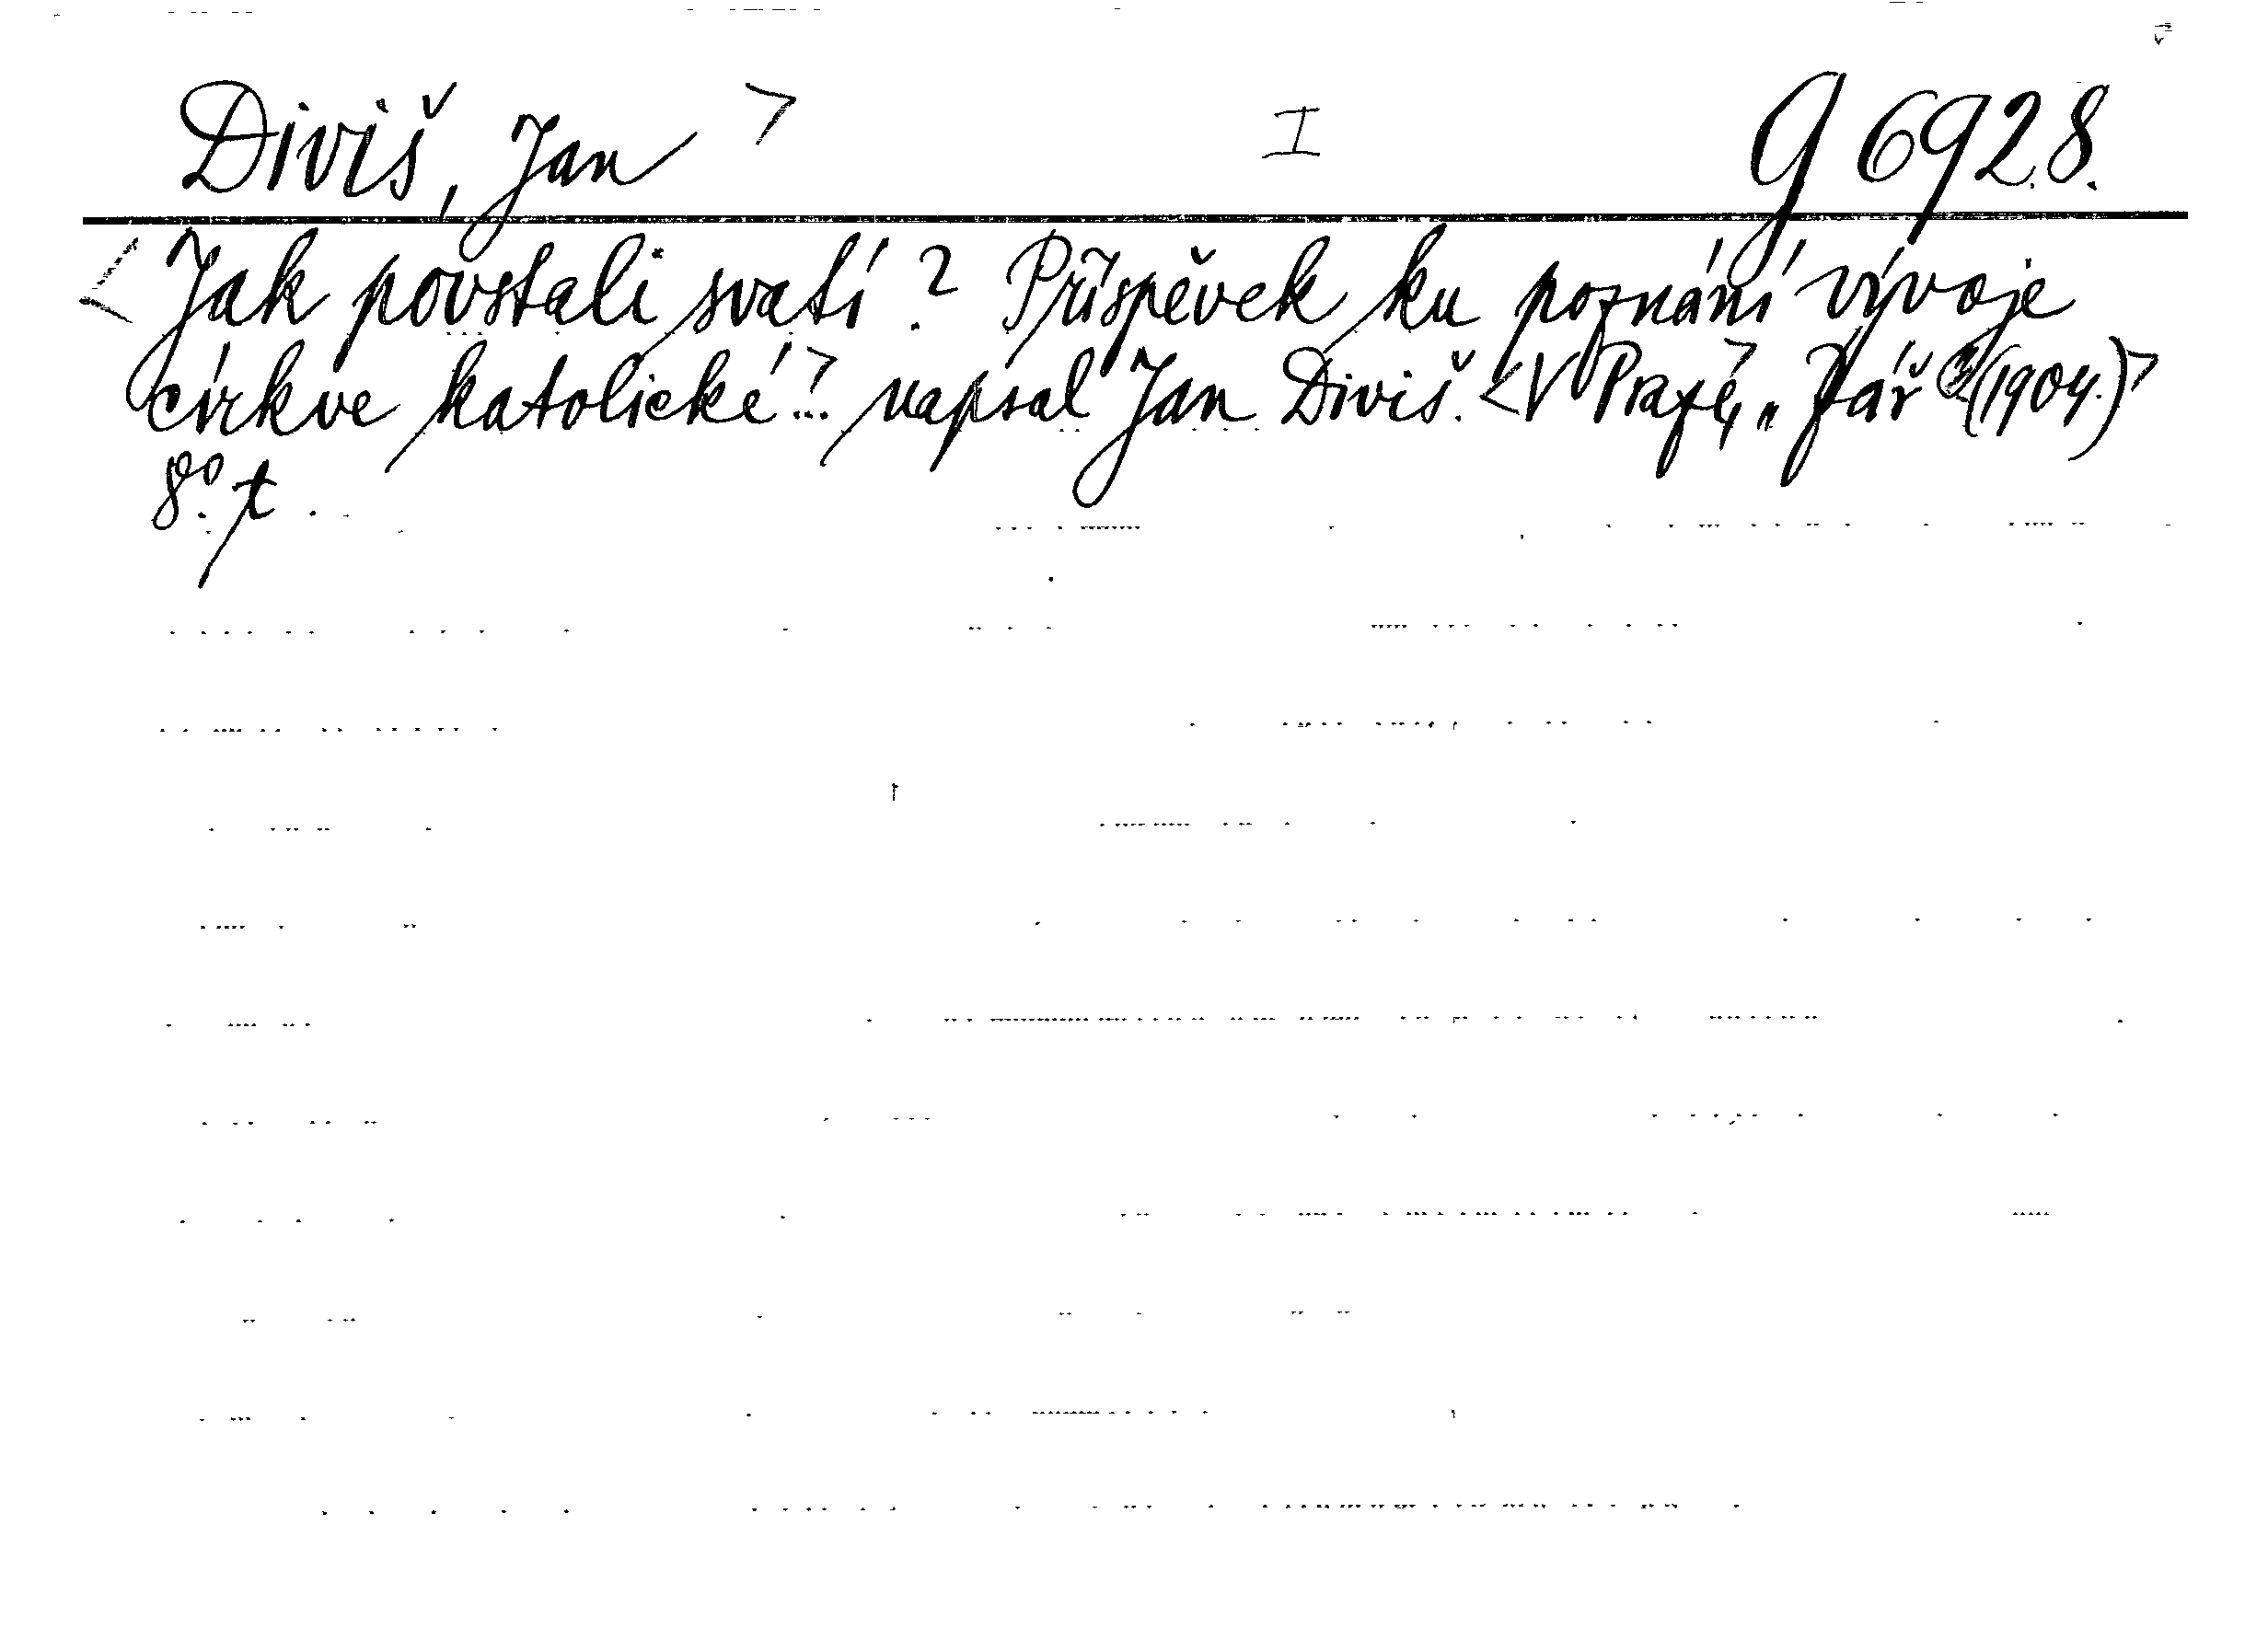 Diviš, Jan > I g 6928.
<Jak povstali svatí? Příspěvek ku poznání vývoje
církve katolické...> napsal Jan Diviš. <V Praze,> „Zář“ (1904.)>
8°. t